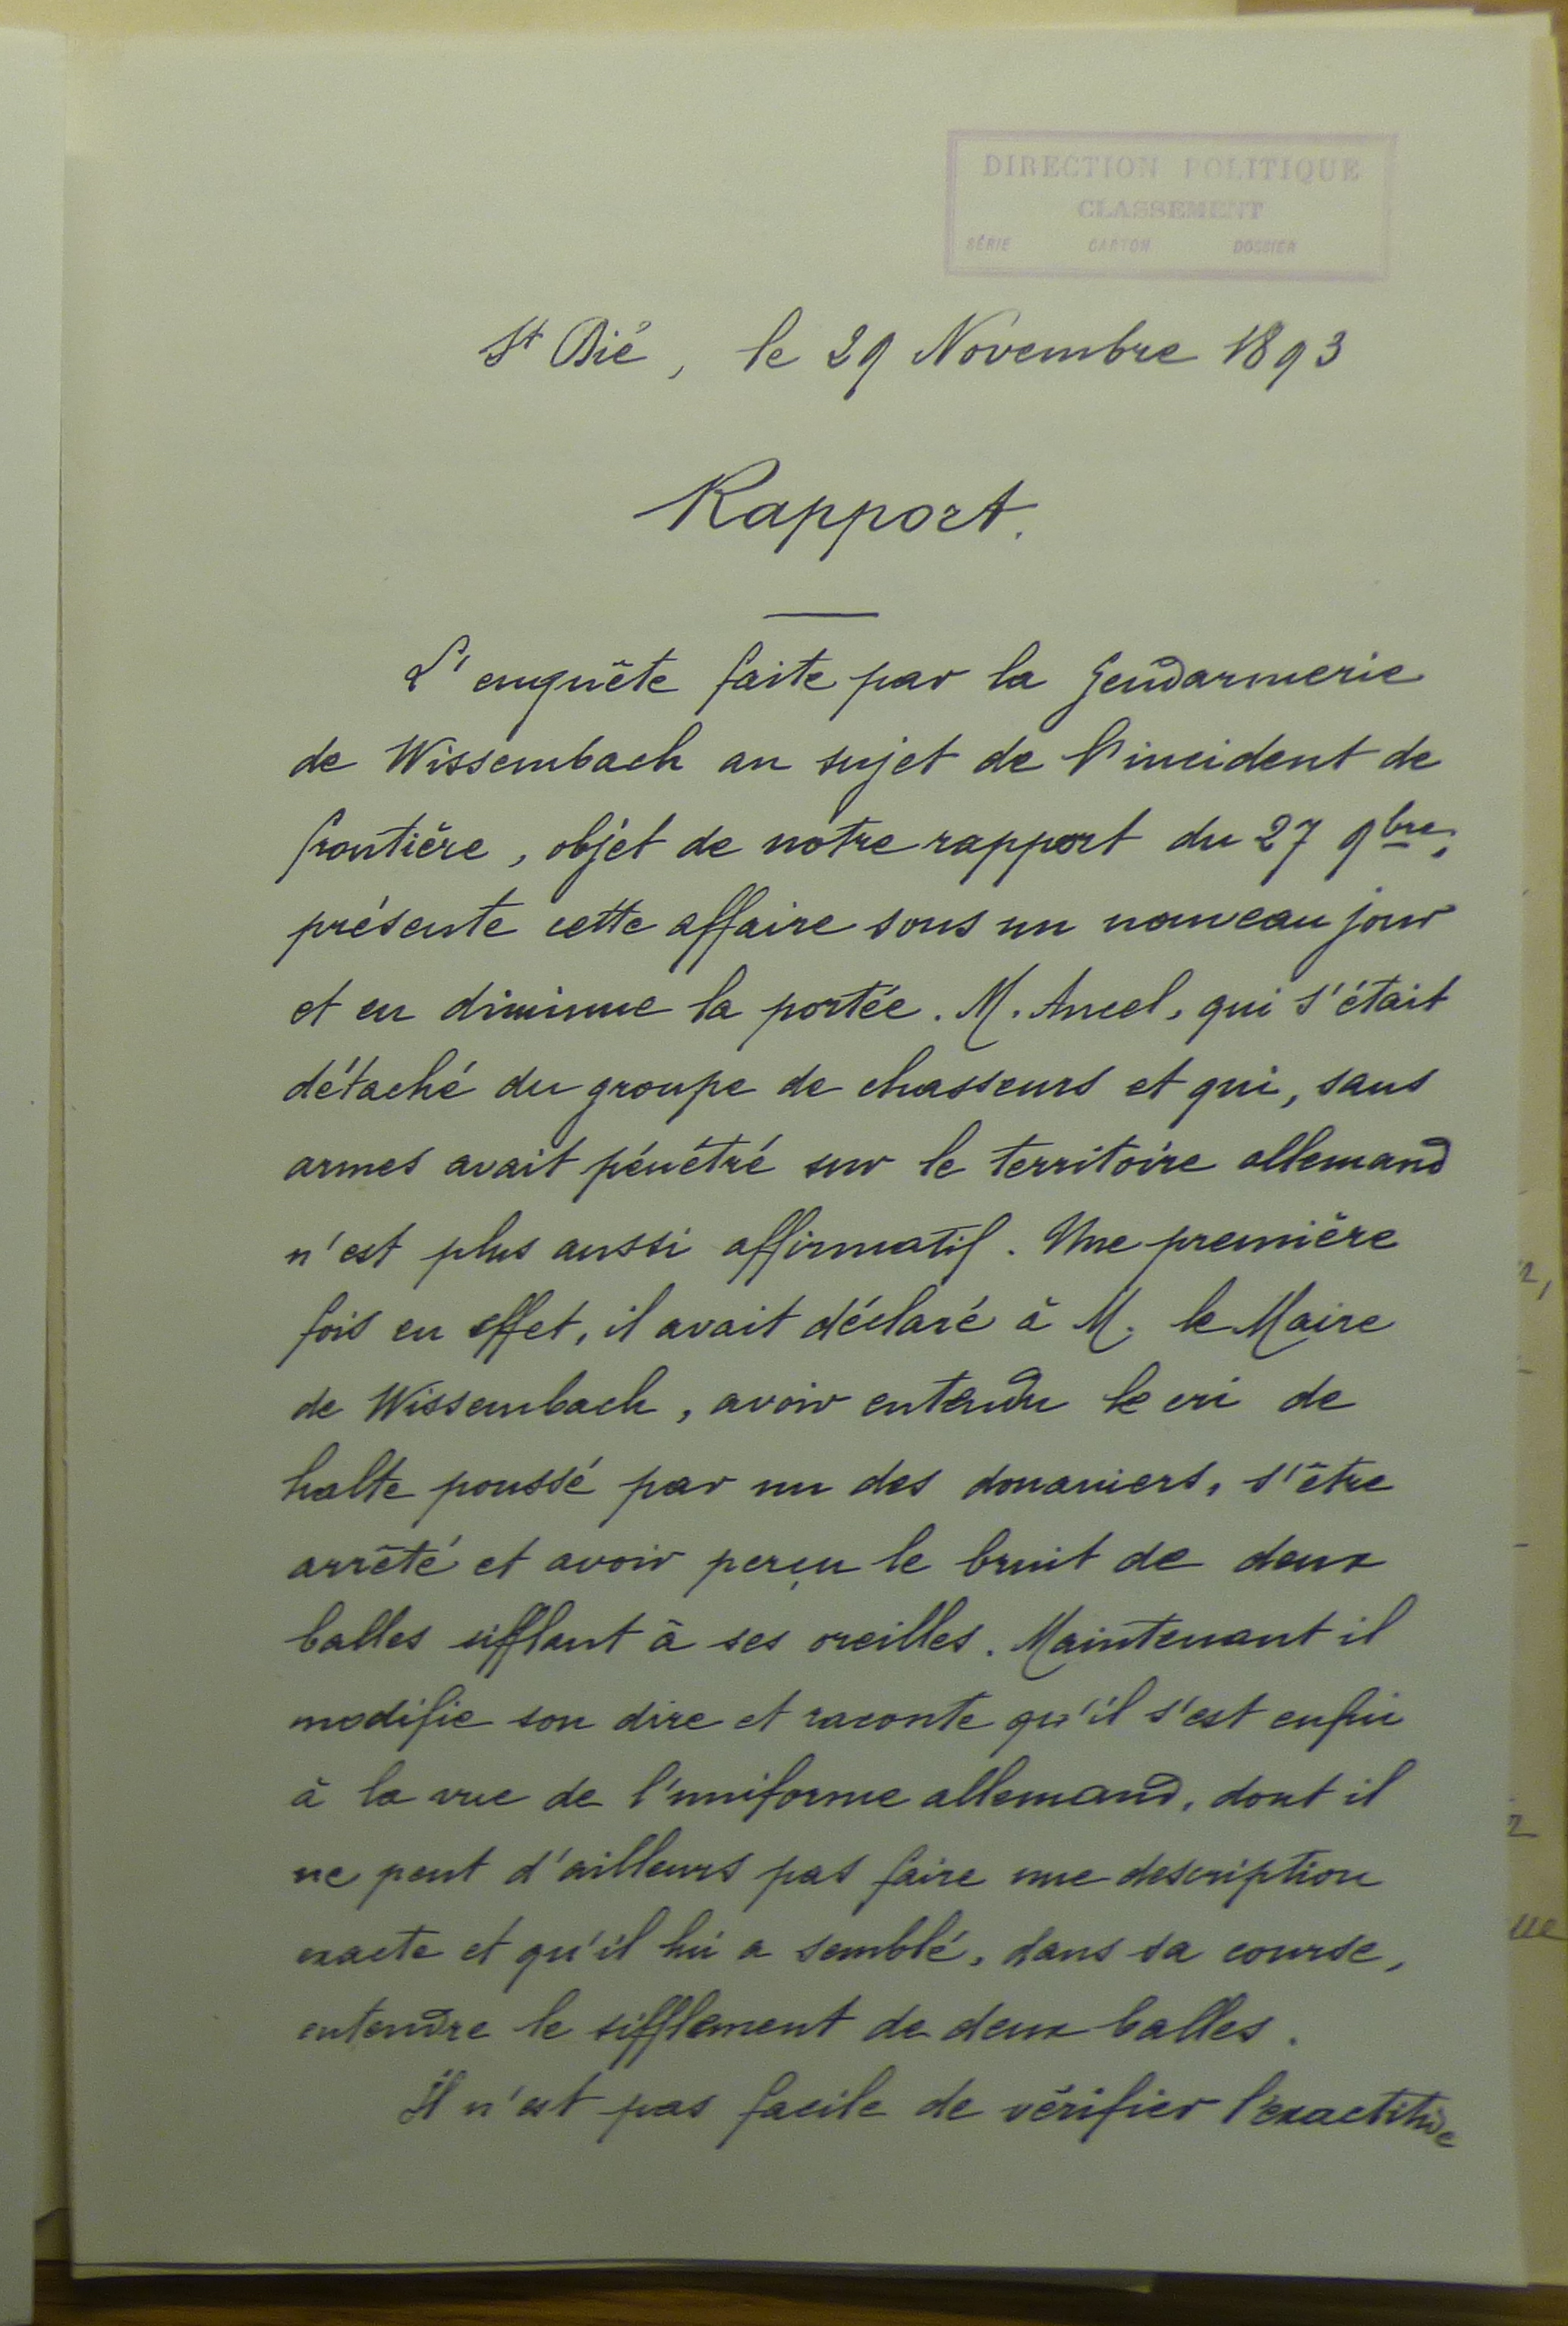 DIRECTION POLITIQUE
CLASSEMENT
SÉRIE CARTON DOSSIER
St Dié, le 29 Novembre 1893
Rapport.
L'enquête faite par la Gendarmerie
de Wissembach au sujet de l'incident de
frontière, objet de notre rapport du 27 9bre,
présente cette affaire sous un nouveau jour
et en diminue la portée. M. Ancel, qui s'était
détaché du groupe de chasseurs et qui, sans
armes avait pénétré sur le territoire allemand
n'est plus aussi affirmatif. Une première
fois en effet, il avait déclaré à M. le Maire
de Wissembach, avoir entendu le cri de
halte poussé par un des douaniers, s'être
arrêté et avoir perçu le bruit de deux
balles sifflant à ses oreilles. Maintenant il
modifie son dire et raconte qu'il s'est enfui
à la vue de l'uniforme allemand, dont il
ne peut d'ailleurs pas faire une description
exacte et qu'il lui a semblé, dans sa course,
entendre le sifflement de deux balles.
Il n'est pas facile de vérifier l'exactitude